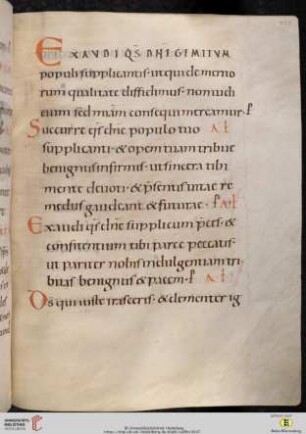 EXAUDI QS DNE GEMITUM
populi supplicantis. ut qui de merito
rum qualitate diffidimus. non iudici
eum sed miam consequi mereamur. P
Succurre qs dne populo tuo
supplicanti. & opem tuam tribue
benignus infirmis. ut sincera tibi
mente deuoti. & psentis uitae re
mediis gaudeant & futurae. P
Exaudi qs dne supplicum pces. &
confitentium tibi parce peccatis.
ut pariter nobis indulgentiam tri
buas benignus & pacem. P
Ds qui iuste irasceris. & clementer ig